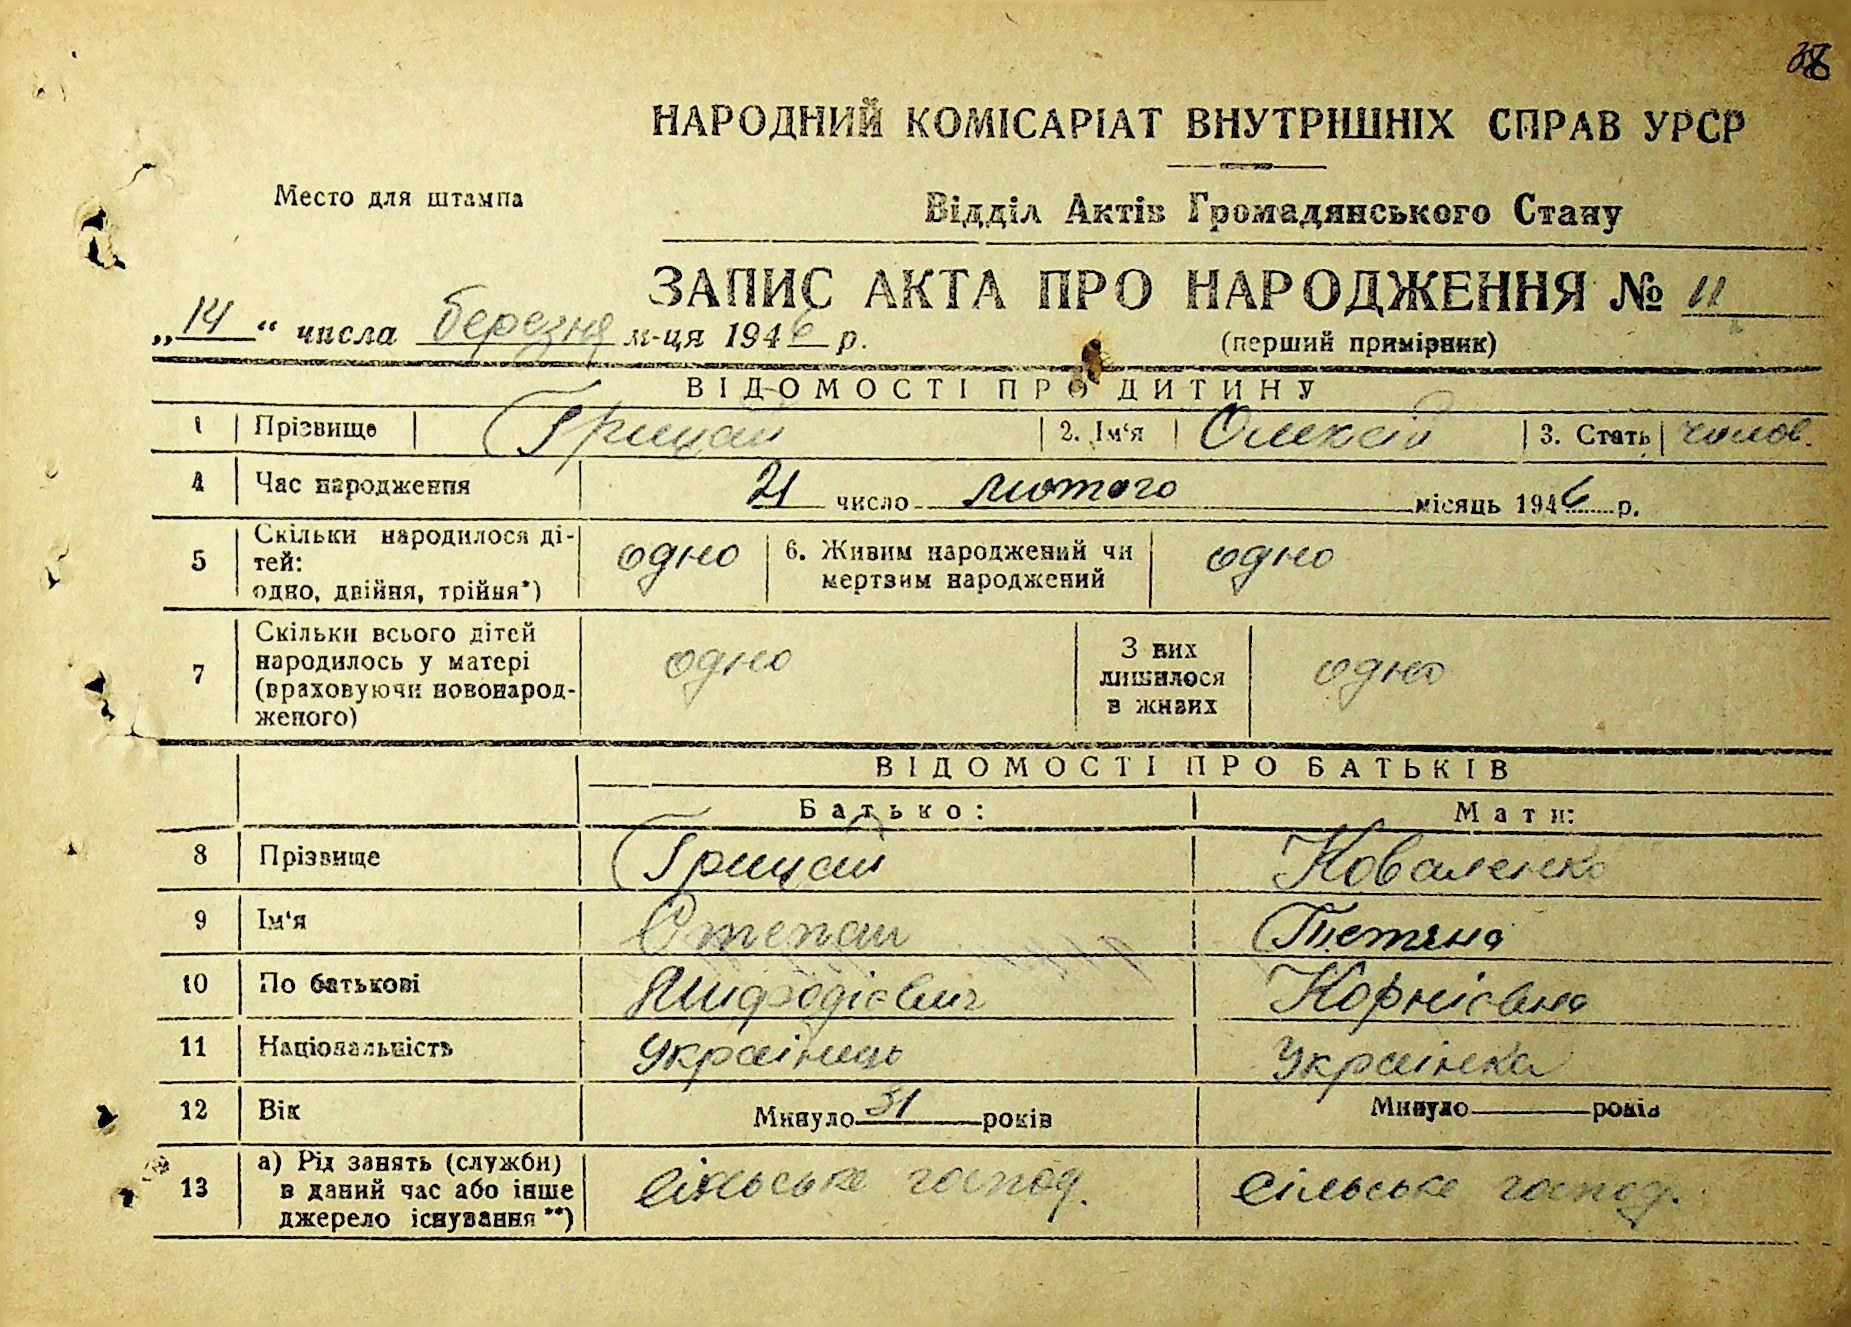 НАРОДНИЙ КОМІСАРІАТ ВНУТРІШНІХ СПРАВ УРСР
Место для штампа
Відділ Актів Громадянського Стану
ЗАПИС АКТА ПРО НАРОДЖЕННЯ № 11
„14“ числа березня м-ця 1946 р.
(перший примірник)
ВІДОМОСТІ ПРО ДИТИНУ
1 Прізвище Грицай 2. Ім‘я Олексій 3. Стать чолов.
4 Час народження 21 число лютого місяць 1946 р.
5 Скільки народилося ді-
тей:
одно, двійня, трійня*) одно 6. Живим народжений чи
мертвим народжений одно
7 Скільки всього дітей
народилось у матері
(враховуючи новонарод-
женого) одно З них
лишилося
в живих одно
ВІДОМОСТІ ПРО БАТЬКІВ
Батько: Мати:
8 Прізвище Грицай Коваленко
9 Ім‘я Степан Тетяна
10 По батькові Корніївна
11 Національність Українець Українка
12 Вік Минуло 31 років Минуло років
13 а) Рід занять (служби)
в даний час або інше
джерело існування**) сільське господ. сільське господ.